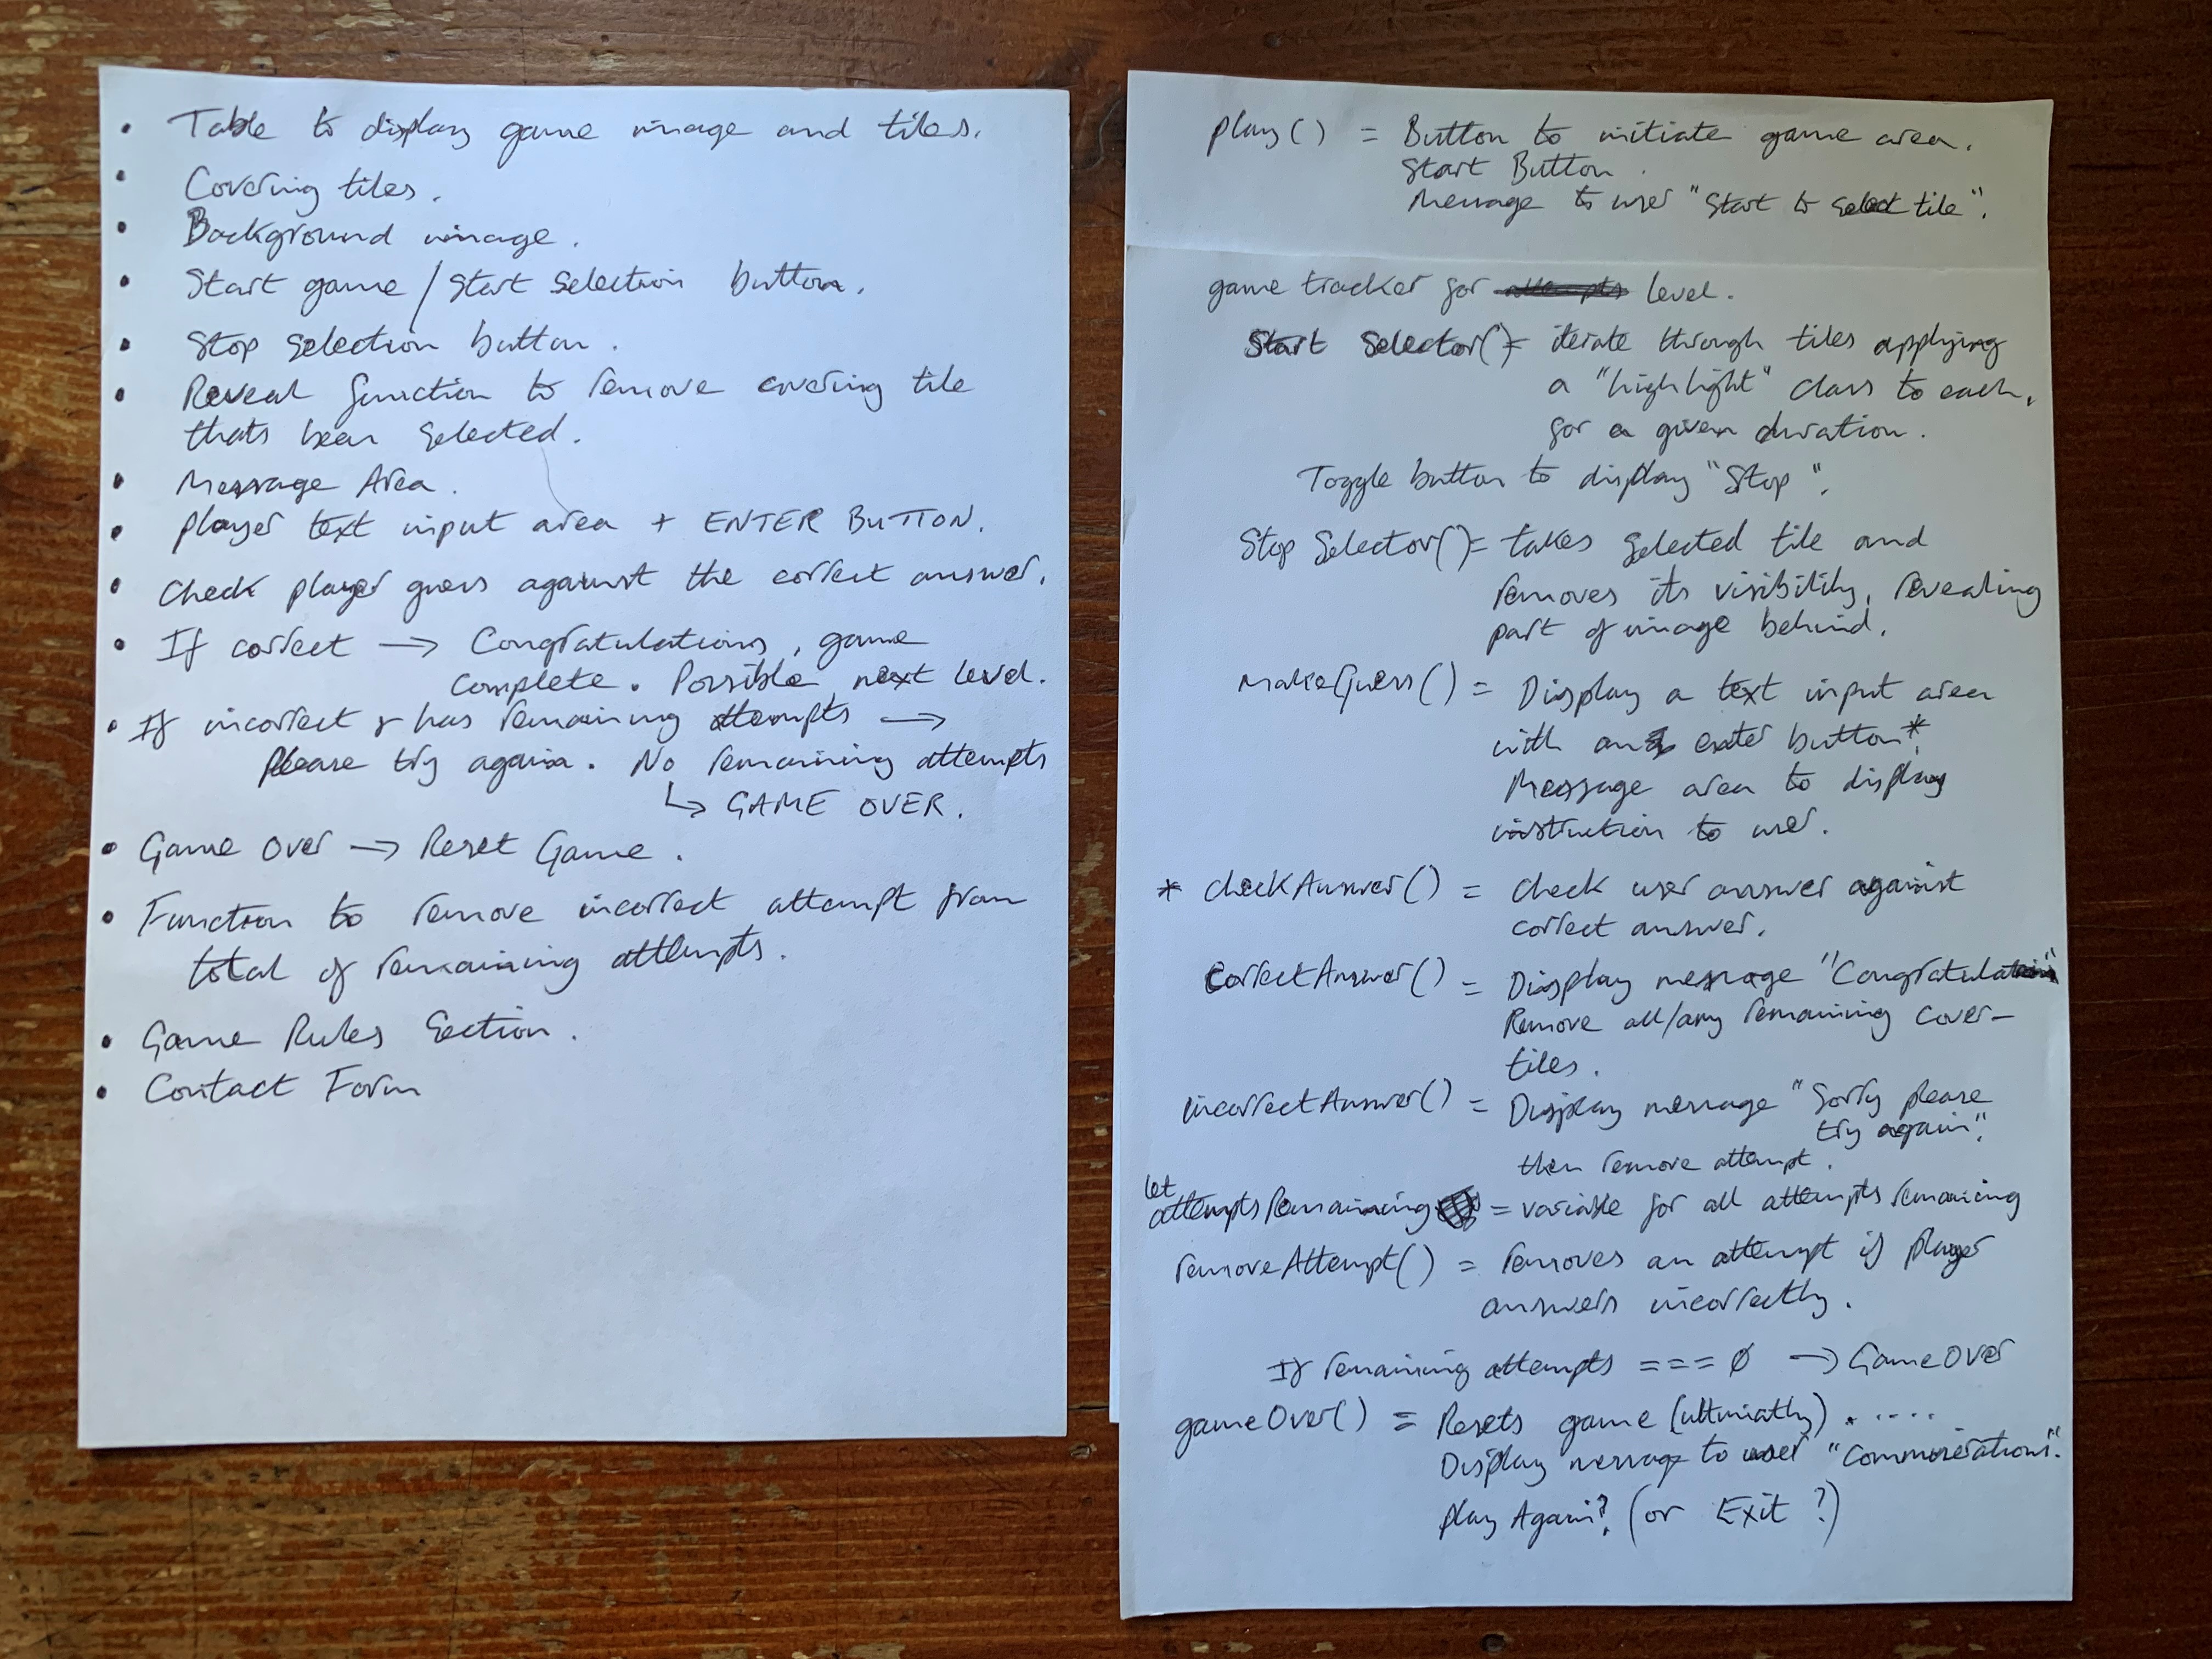 • Table to display game image and tiles.
• Covering tiles.
• Background image.
• Start game / Start Selection button.
• Stop Selection button.
• Reveal function to remove covering tile
thats been selected.
• Message Area.
• player text input area + ENTER BUTTON.
• Check player guess against the correct answer.
• If correct → Congratulations, game
complete. Possible next level.
• If incorrect & has remaining attempts →
please try again. No remaining attempts
↳ GAME OVER.
• Game Over → Reset Game.
• Function to remove incorrect attempt from
total of remaining attempts.
• Game Rules Section.
• Contact Form
play() = Button to initiate game area.
Start Button.
Message to user "Start to select tile".
game tracker for attempts level.
Start Selector() = iterate through tiles applying
a "highlight" class to each,
for a given duration.
Toggle button to display "Stop".
Stop Selector() = takes selected tile and
removes its visibility, revealing
part of image behind.
makeGuess() = Display a text input area
with an enter button*.
Message area to display
instruction to user.
* checkAnswer() = check user answer against
correct answer.
CorrectAnswer() = Display message "Congratulations"
Remove all/any remaining cover-
tiles.
incorrectAnswer() = Display message "Sorry please
try again".
then remove attempt.
let
attemptsRemaining = variable for all attempts remaining
removeAttempt() = removes an attempt if player
answers incorrectly.
If remaining attempts === 0 → GameOver
gameOver() = Resets game (ultimatly) . ....
Display message to user "Commiserations".
play Again? (or Exit ?)